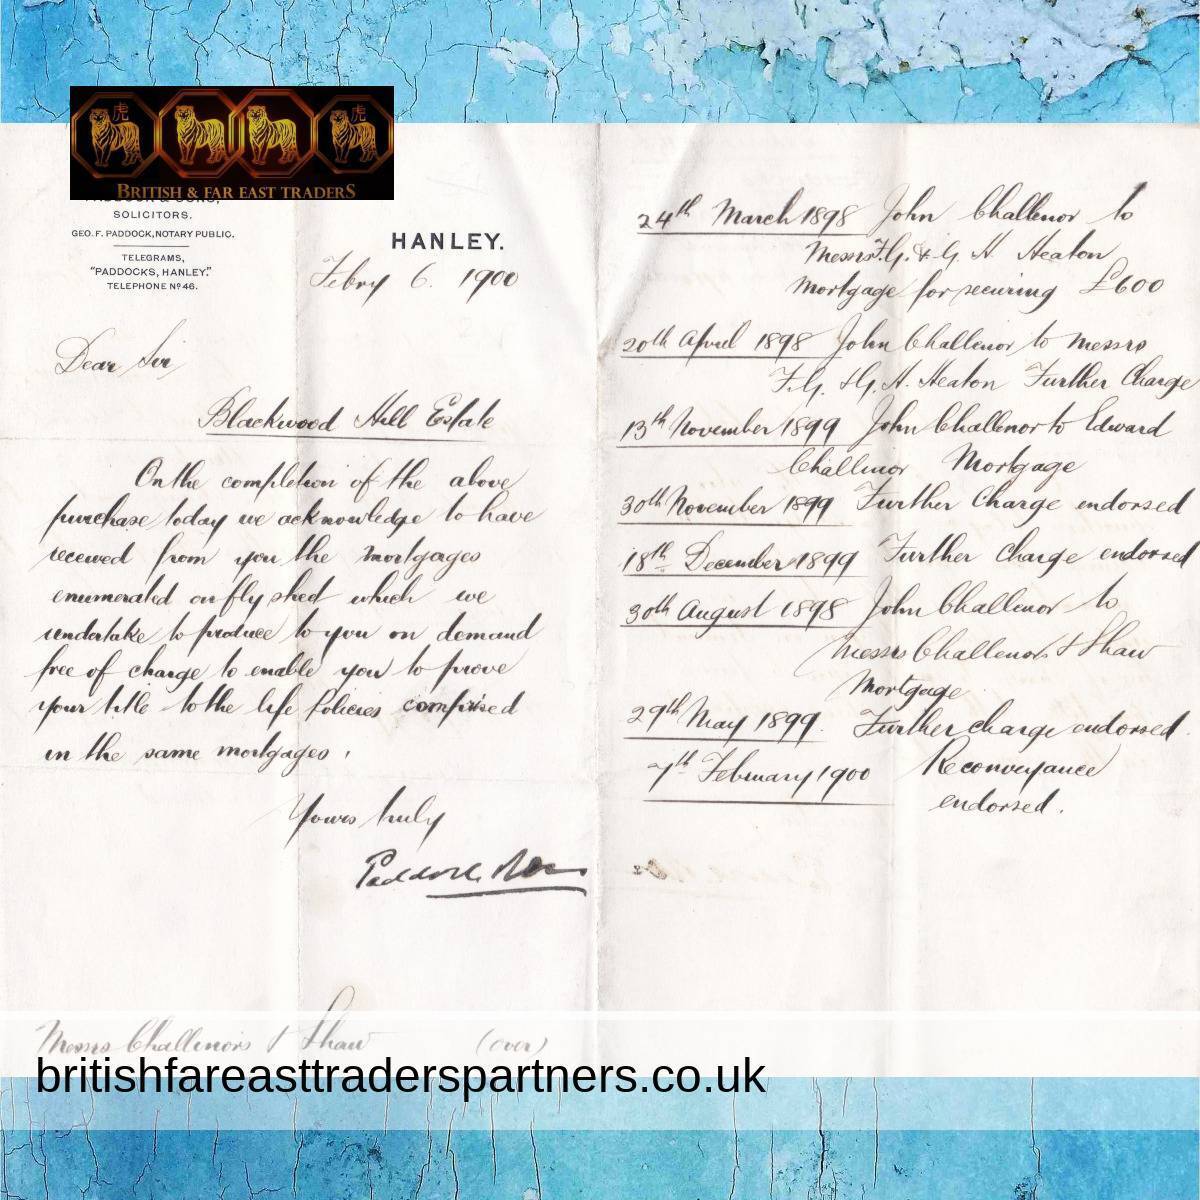 虎 虎
BRITISH & FAR EAST TRADERS
PADDOCK & SONS,
SOLICITORS.
GEO. F. PADDOCK, NOTARY PUBLIC.
TELEGRAMS,
"PADDOCKS, HANLEY."
TELEPHONE Nº 46.
HANLEY.
Febry 6. 1900
Dear Sir
Blackwood Hill Estate
On the completion of the above
purchase today we acknowledge to have
received from you the mortgages
enumerated on fly shed which we
undertake to produce to you on demand
free of charge to enable you to prove
your title to the life Policies comprised
in the same mortgages.
Yours truly
Paddock & Sons
Messrs Challinors & Shaw (over)
24th March 1898 John Challinor to
Messrs F.G. & G. H. Heaton
Mortgage for securing £600
20th April 1898 John Challinor to Messrs
F.G. & G. H. Heaton Further Charge
13th November 1899 John Challinor to Edward
Challinor Mortgage
30th November 1899 Further Charge endorsed
18th December 1899 Further Charge endorsed
30th August 1898 John Challinor to
Messrs Challinors & Shaw
Mortgage
29th May 1899. Further charge endorsed.
7th February 1900 Reconveyance
endorsed.
britishfareasttraderspartners.co.uk